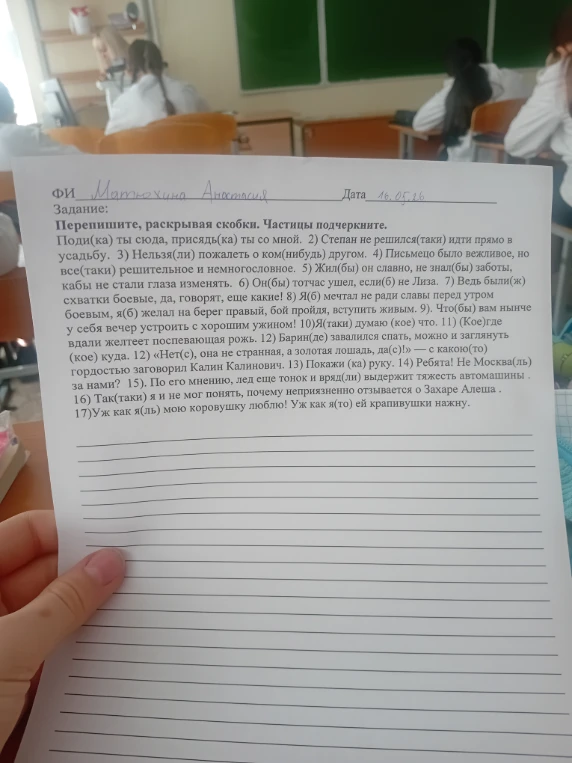 ФИ Матюхина Анастасия Дата 16.05.26
Задание:
Перепишите, раскрывая скобки. Частицы подчеркните.
Поди(ка) ты сюда, присядь(ка) ты со мной. 2) Степан не решился(таки) идти прямо в
усадьбу. 3) Нельзя(ли) пожалеть о ком(нибудь) другом. 4) Письмецо было вежливое, но
все(таки) решительное и немногословное. 5) Жил(бы) он славно, не знал(бы) заботы,
кабы не стали глаза изменять. 6) Он(бы) тотчас ушел, если(б) не Лиза. 7) Ведь были(ж)
схватки боевые, да, говорят, еще какие! 8) Я(б) мечтал не ради славы перед утром
боевым, я(б) желал на берег правый, бой пройдя, вступить живым. 9). Что(бы) вам нынче
у себя вечер устроить с хорошим ужином! 10)Я(таки) думаю (кое) что. 11) (Кое)где
вдали желтеет поспевающая рожь. 12) Барин(де) завалился спать, можно и заглянуть
(кое) куда. 12) «Нет(с), она не странная, а золотая лошадь, да(с)!» — с какою(то)
гордостью заговорил Калин Калинович. 13) Покажи (ка) руку. 14) Ребята! Не Москва(ль)
за нами? 15). По его мнению, лед еще тонок и вряд(ли) выдержит тяжесть автомашины .
16) Так(таки) я и не мог понять, почему неприязненно отзывается о Захаре Алеша .
17)Уж как я(ль) мою коровушку люблю! Уж как я(то) ей крапивушки нажну.